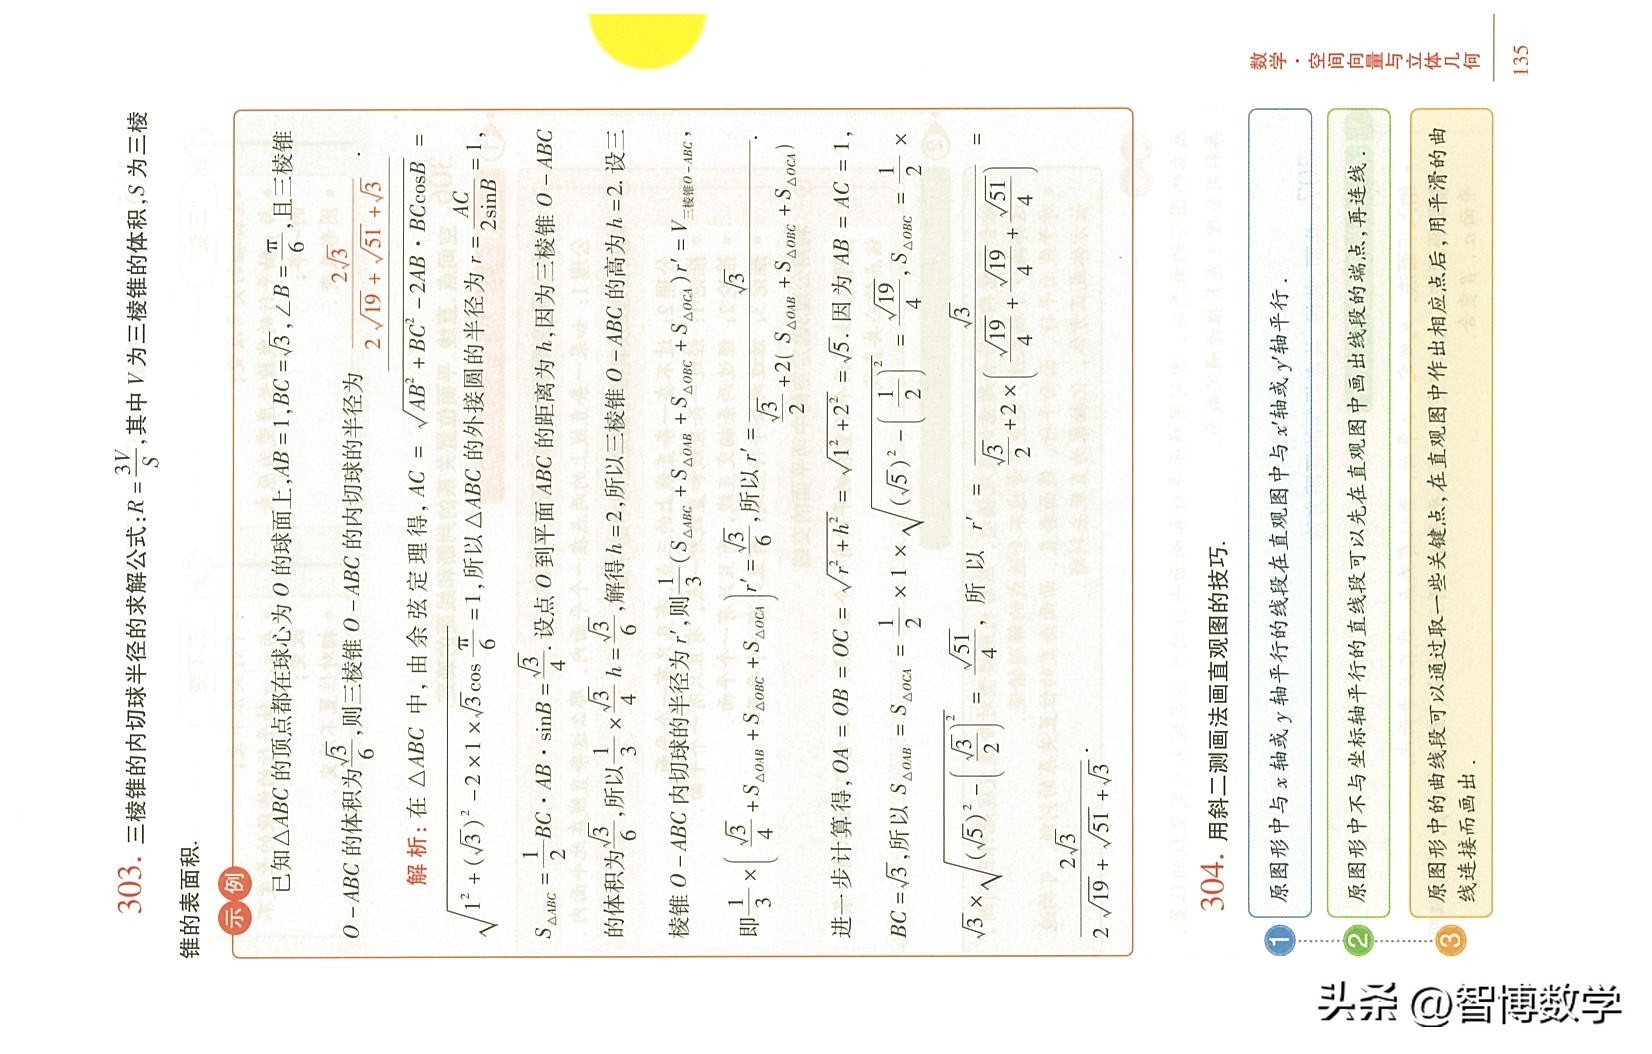 303. 三棱锥的内切球半径的求解公式:R=3V/S,其中V为三棱锥的体积,S为三棱
锥的表面积.
示例
已知△ABC的顶点都在球心为O的球面上,AB=1,BC=√3,∠B=π/6,且三棱锥
O-ABC的体积为√3/6,则三棱锥O-ABC的内切球的半径为 2√3/(2√19+√51+√3) .
解析:在△ABC中,由余弦定理得,AC=√(AB²+BC²-2AB·BCcosB)=
√(1²+(√3)²-2×1×√3cos π/6)=1,所以△ABC的外接圆的半径为r=AC/(2sinB)=1,
S△ABC=1/2 BC·AB·sinB=√3/4.设点O到平面ABC的距离为h,因为三棱锥O-ABC
的体积为√3/6,所以1/3×√3/4 h=√3/6,解得h=2,所以三棱锥O-ABC的高为h=2.设三
棱锥O-ABC内切球的半径为r′,则1/3(S△ABC+S△OAB+S△OBC+S△OCA)r′=V三棱锥O-ABC,
即1/3×(√3/4+S△OAB+S△OBC+S△OCA)r′=√3/6,所以r′=√3/(√3/2+2(S△OAB+S△OBC+S△OCA)).
进一步计算得,OA=OB=OC=√(r²+h²)=√(1²+2²)=√5.因为AB=AC=1,
BC=√3,所以S△OAB=S△OCA=1/2×1×√((√5)²-(1/2)²)=√19/4,S△OBC=1/2×
√3×√((√5)²-(√3/2)²)=√51/4,所以r′=√3/(√3/2+2×(√19/4+√19/4+√51/4))=
2√3/(2√19+√51+√3).
304. 用斜二测画法画直观图的技巧.
1 原图形中与x轴或y轴平行的线段在直观图中与x′轴或y′轴平行.
2 原图形中不与坐标轴平行的直线段可以先在直观图中画出线段的端点,再连线.
3 原图形中的曲线段可以通过取一些关键点,在直观图中作出相应点后,用平滑的曲
线连接而画出.
数学·空间向量与立体几何
135
头条 @智博数学